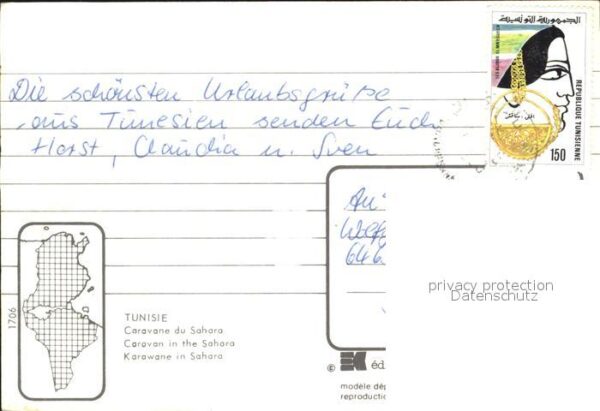 الجمهورية التونسية
REPUBLIQUE TUNISIENNE
150
Die schönsten Urlaubsgrüße
aus Tunesien senden Euch
Horst, Claudia u. Sven
An
646
privacy protection
Datenschutz
1706
TUNISIE
Caravane du Sahara
Caravan in the Sahara
Karawane in Sahara
© éd
modèle dép
reproductio